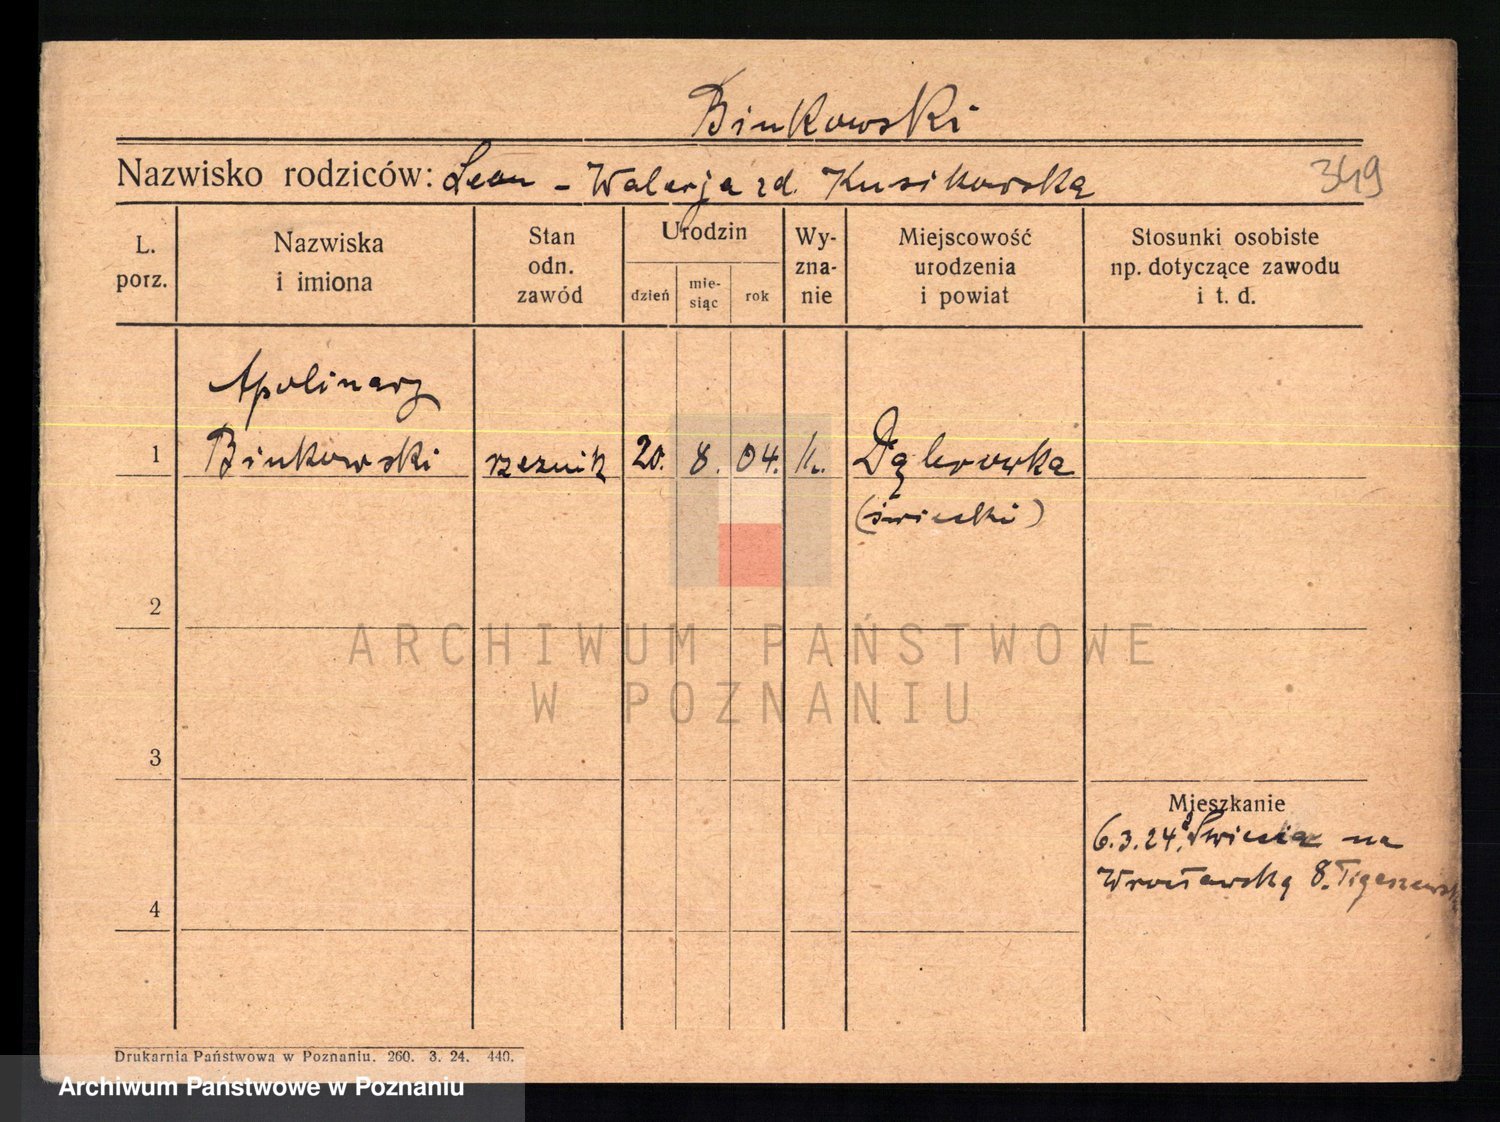 Binkowski
Nazwisko rodziców: Leon - Walerja zd. Kusikowska 349
L. porz.
Nazwiska i imiona
Stan odn. zawód
Urodzin
dzień
mie-siąc
rok
Wy-zna-nie
Miejscowość urodzenia i powiat
Stosunki osobiste np. dotyczące zawodu i t. d.
Apolinary
1 Binkowski rzeznik 20. 8. 04. k. Dąbrowka
(świecki)
2
ARCHIWUM PAŃSTWOWE
W POZNANIU
3
Mieszkanie
6.3.24. na
Wrocławską 8.
4
Drukarnia Państwowa w Poznaniu. 260. 3. 24. 440.
Archiwum Państwowe w Poznaniu